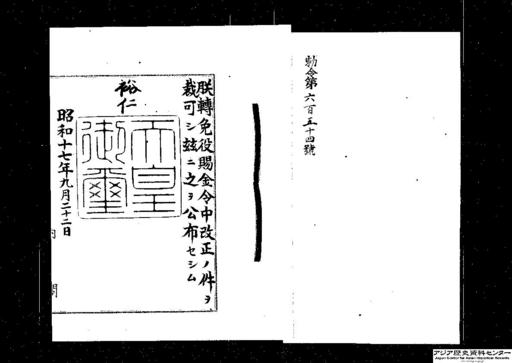 勅令第六百五十四號
朕轉免役賜金令中改正ノ件ヲ
裁可シ玆ニ之ヲ公布セシム
裕仁
天皇
御璽
昭和十七年九月二十二日
内
閣
アジア歴史資料センター
Japan Center for Asian Historical Records